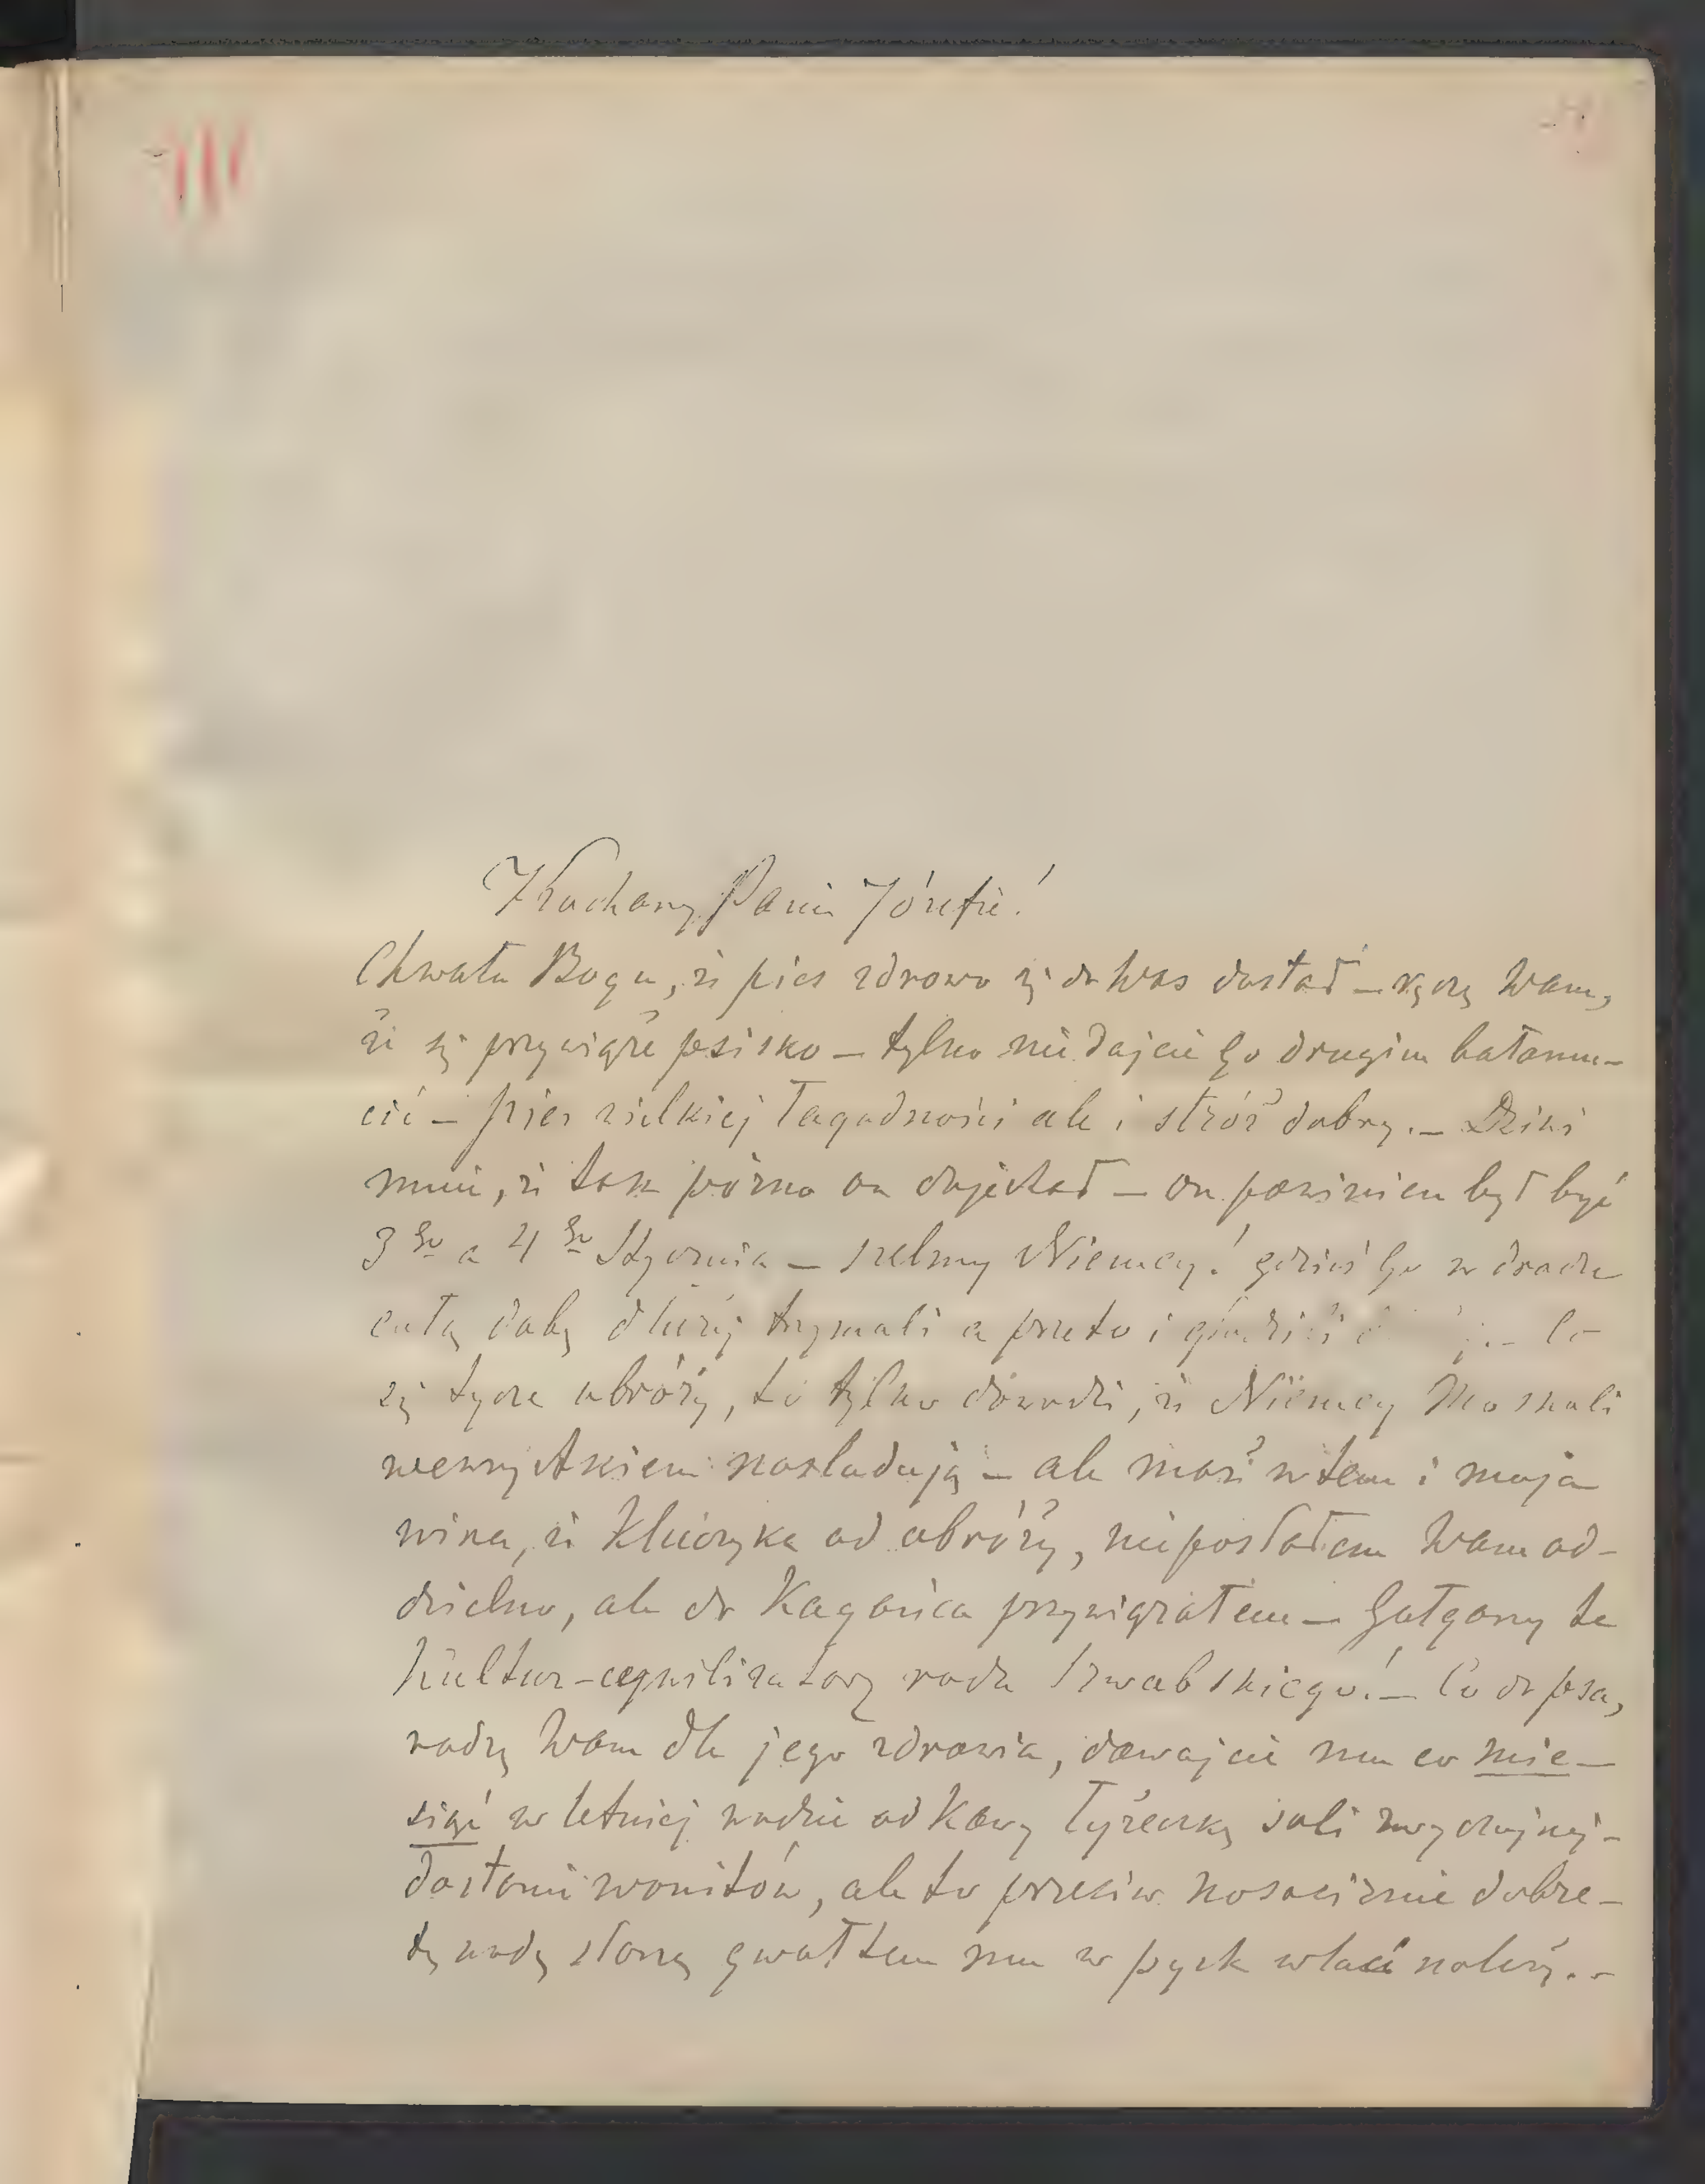 Kochany Panie Józefie!
Chwała Bogu, że pies zdrowo się do Was dostał — ręczę Wam,
że się przywiąże psisko — tylko nie dajcie go drugim bałamu-
cić — pies wielkiej łagodności ale i stróż dobry. — Dziwi
mnie, że tak późno on dojechał — on powinien był być
3go a 4go Stycznia — szelmy Niemcy! gdzieś go w drodze
całą dobę dłużej trzymali a przeto i — Co
się tycze obróży, to tylko dowodzi, że Niemcy Moskali
we wszystkiem naśladują — ale może w tem i moja
wina, że kluczyka od obróży, nie posłałem Wam od-
dzielno, ale do Kagańca przywiązałem — Gałgany te
Kultur-cywilizatory rodu Szwabskiego! — Co do psa,
radzę Wam dla jego zdrowia, dawajcie mu co mie-
siąc w letniej wodzie od Kawy łyżeczkę soli zwyczajnej —
dostanie womitów, ale to przeciw nosaciznie dobre —
tę wodę słoną gwałtem mu w pysk wlać należy. —